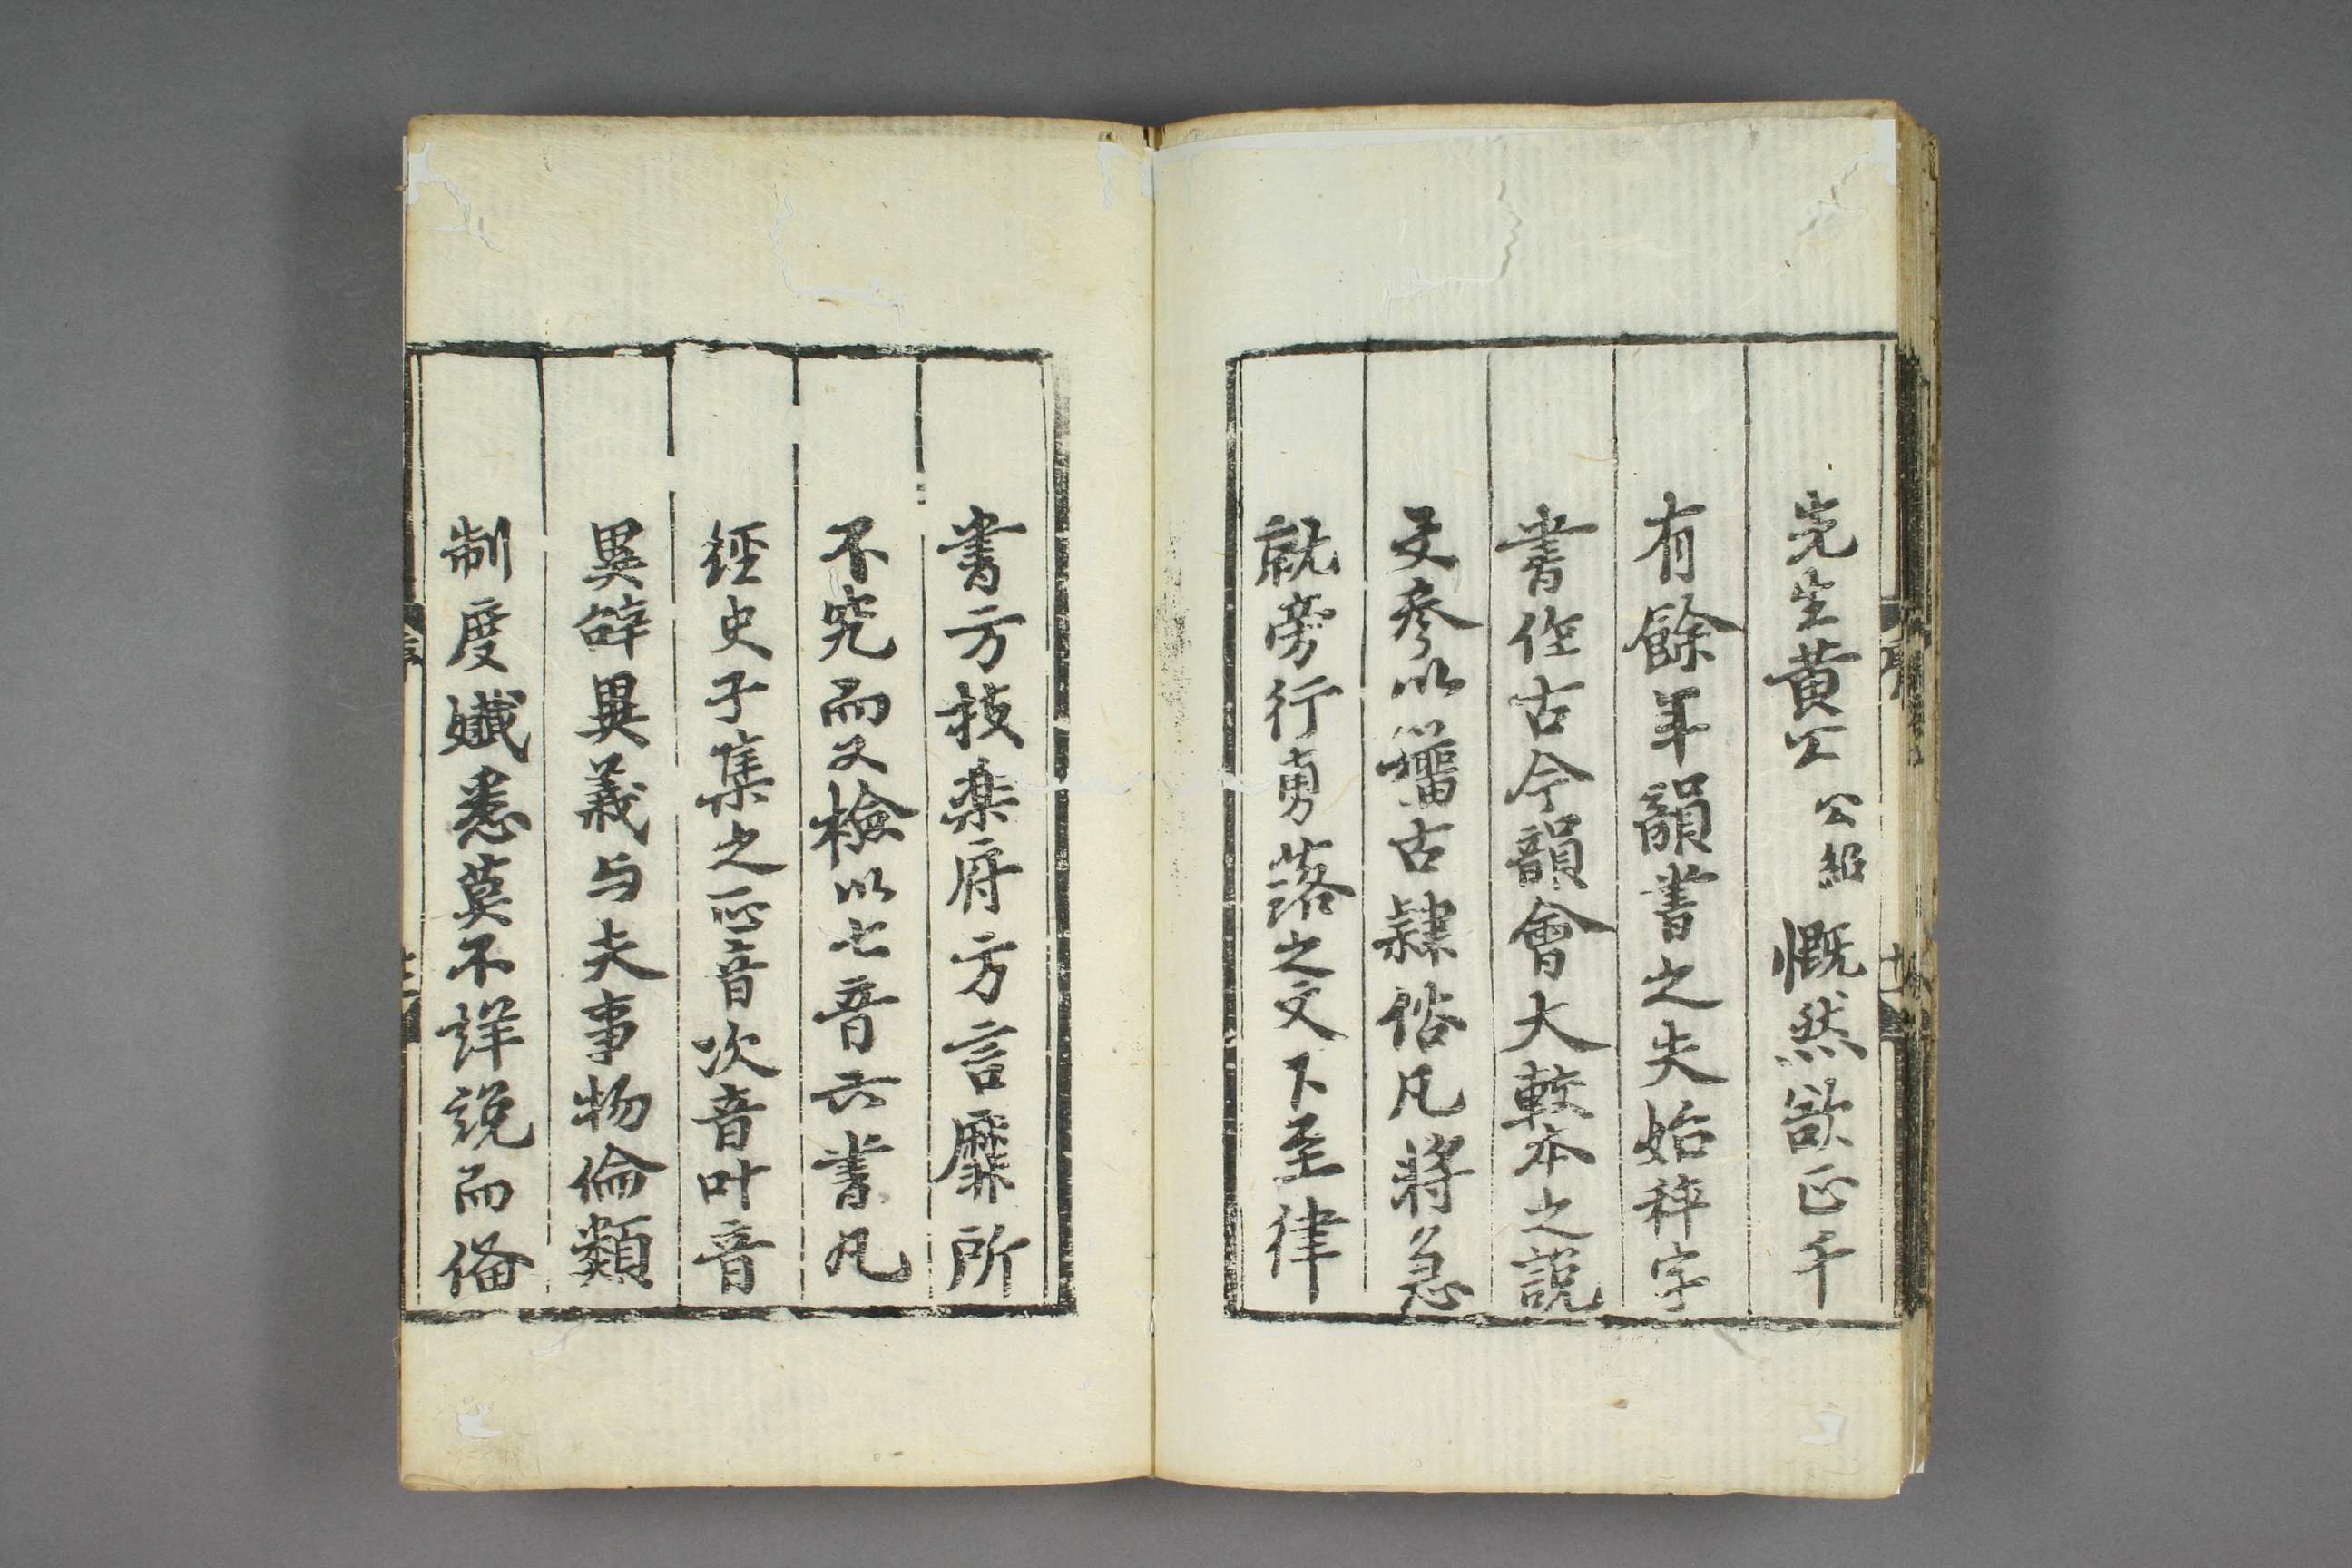 先生黄公公紹慨然欲正千
有餘年韻書之失始秤字
書作古今韻會大較本之說
文參以籒古隸俗凡將急
就旁行旉落之文下至律
書方技楽府方言靡所
不究而又檢以七音六書凡
經史子集之正音次音叶音
異辭異義与夫事物倫類
制度孅悉莫不詳說而俻